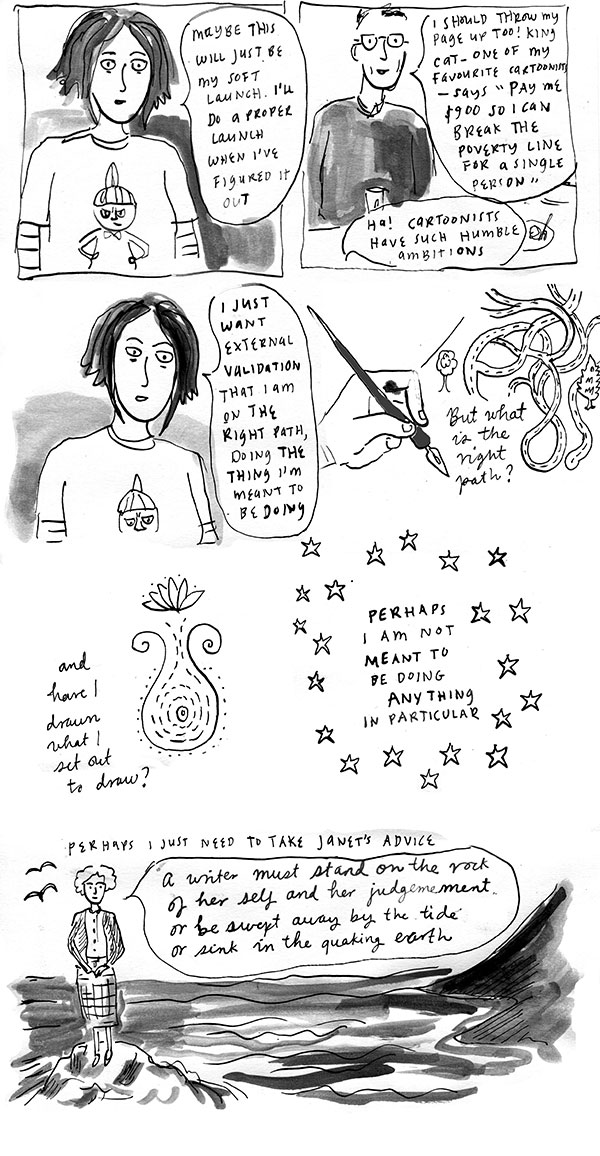 MAYBE THIS
WILL JUST BE
MY SOFT
LAUNCH. I'LL
DO A PROPER
LAUNCH
WHEN I'VE
FIGURED IT
OUT
I SHOULD THROW MY
PAGE UP TOO! KING
CAT - ONE OF MY
FAVOURITE CARTOONISTS
- SAYS "PAY ME
$900 SO I CAN
BREAK THE
POVERTY LINE
FOR A SINGLE
PERSON"
HA! CARTOONISTS
HAVE SUCH HUMBLE
AMBITIONS
I JUST
WANT
EXTERNAL
VALIDATION
THAT I AM
ON THE
RIGHT PATH,
DOING THE
THING I'M
MEANT TO
BE DOING
But what
is the
right
path?
and
have I
drawn
what I
set out
to draw?
PERHAPS
I AM NOT
MEANT TO
BE DOING
ANYTHING
IN PARTICULAR
PERHAPS I JUST NEED TO TAKE JANET'S ADVICE
A writer must stand on the rock
of her self and her judgemement
or be swept away by the tide
or sink in the quaking earth